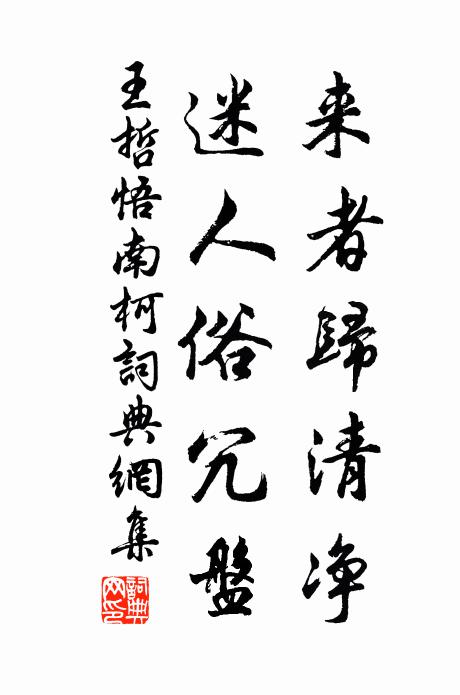 来者歸清净
迷人俗冗盤
王哲悟南柯詞典網集
詞典網印